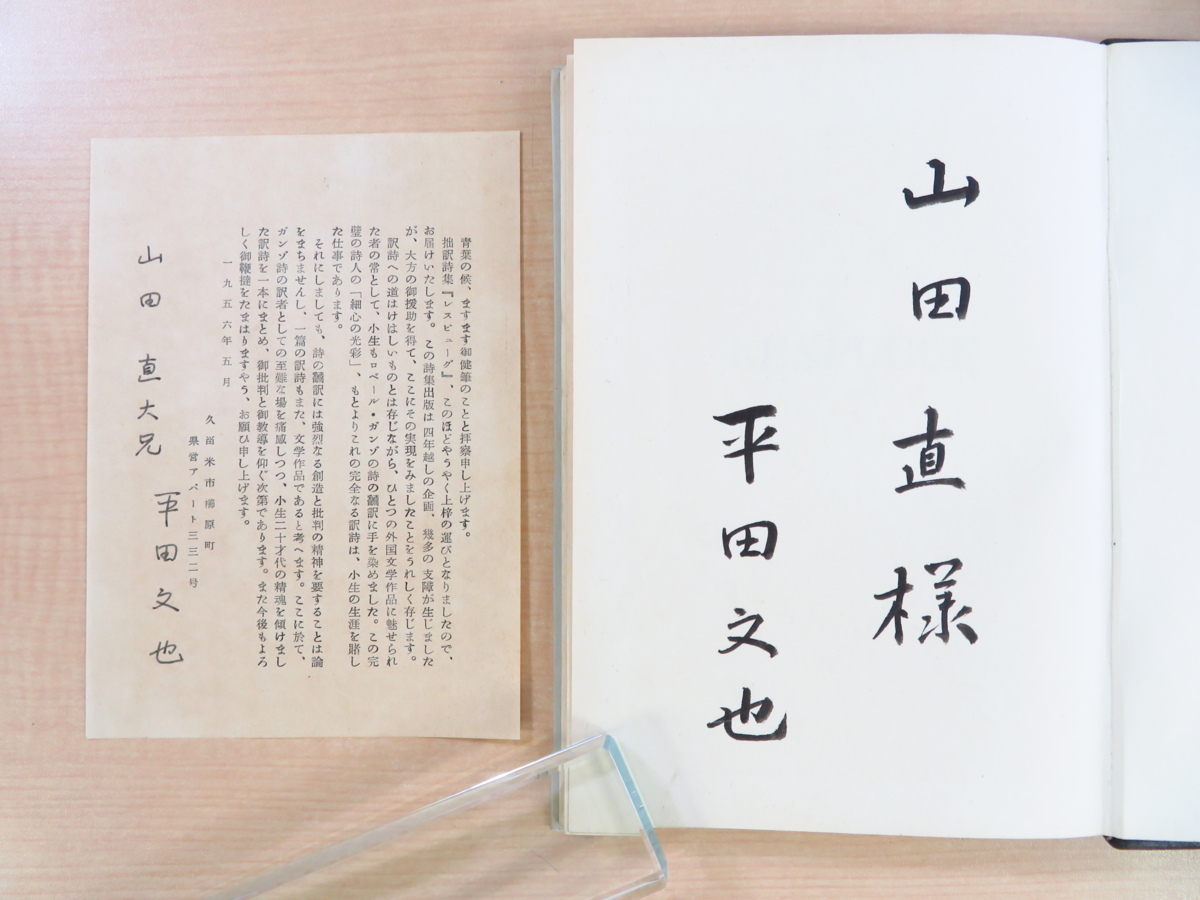 青葉の候、ますます御健筆のことと拝察申し上げます。
拙訳詩集『レスピューグ』、このほどやうやく上梓の運びとなりましたので、
お届けいたします。この詩集出版は四年越しの企画、幾多の支障が生じました
が、大方の御援助を得て、ここにその実現をみましたことをうれしく存じます。
訳詩への道はけはしいものとは存じながら、ひとつの外国文学作品に魅せられ
た者の常として、小生もロベール・ガンゾの詩の飜訳に手を染めました。この完
璧の詩人の「細心の光彩」、もとよりこれの完全なる訳詩は、小生の生涯を賭し
た仕事であります。
それにしましても、詩の飜訳には強烈なる創造と批判の精神を要することは論
をまちませんし、一篇の訳詩もまた、文学作品であると考へます。ここに於て、
ガンゾ詩の訳者としての至難な場を痛感しつつ、小生二十才代の精魂を傾けまし
た訳詩を一本にまとめ、御批判と御教導を仰ぐ次第であります。また今後もよろ
しく御鞭撻をたまはりますやう、お願ひ申し上げます。
一九五六年五月
久留米市櫛原町
県営アパート三三二号
平田文也
山田直大兄
山田直様
平田文也